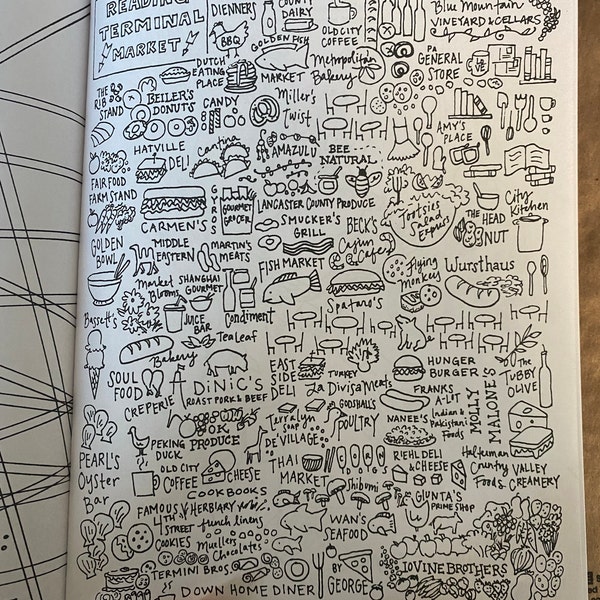 READING
TERMINAL
MARKET
DIENNERS
BBQ
COUNTY
DAIRY
OLD CITY
COFFEE
Blue Mountain
VINEYARD & CELLARS
GOLDEN FISH
MARKET
Metropolitan
Bakery
PA
GENERAL
STORE
DUTCH
EATING
PLACE
THE
RIB
STAND
BEILER'S
DONUTS
CANDY
Miller's
Twist
AMY'S
PLACE
HATVILLE
DELI
Cantina
AMAZULU
BEE
NATURAL
FAIR FOOD
FARM STAND
GOURMET
GROCER
LANCASTER COUNTY PRODUCE
Tootsies
Salad
Express
THE HEAD
NUT
City
Kitchen
CARMEN'S
SMUCKER'S
GRILL
BECK'S
Cajun
Cafe
GOLDEN
BOWL
MIDDLE
EASTERN
MARTIN'S
MEATS
FISH MARKET
Flying
Monkey
Wursthaus
Market
Blooms
SHANGHAI
GOURMET
Spataro's
Bassetts
JUICE
BAR
Condiment
Tea Leaf
Bakery
SOUL
FOOD
CREPERIE
DiNiC'S
ROAST PORK & BEEF
EAST
SIDE
DELI
TURKEY
La Divisa Meats
HUNGER
BURGER
FRANKS
A-LOT
MOLLY
MALONE'S
The
TUBBY
OLIVE
OK
PRODUCE
Terralyn
soap
GODSHALL'S
POULTRY
NANEE'S
Indian &
Pakistani
Foods
PEKING
DUCK
DE VILLAGE
PEARL'S
Oyster
Bar
OLD CITY
COFFEE
CHEESE
THAI
MARKET
RIEHL DELI
& CHEESE
Halteman
Country
Foods
VALLEY
CREAMERY
COOKBOOKS
Shibumi
GIUNTA'S
PRIME SHOP
FAMOUS
4TH
STREET
COOKIES
HERBIARY
french linens
WAN'S
SEAFOOD
Muellers
Chocolates
TERMINI BROS
BY
GEORGE
IOVINE BROTHERS
DOWN HOME DINER